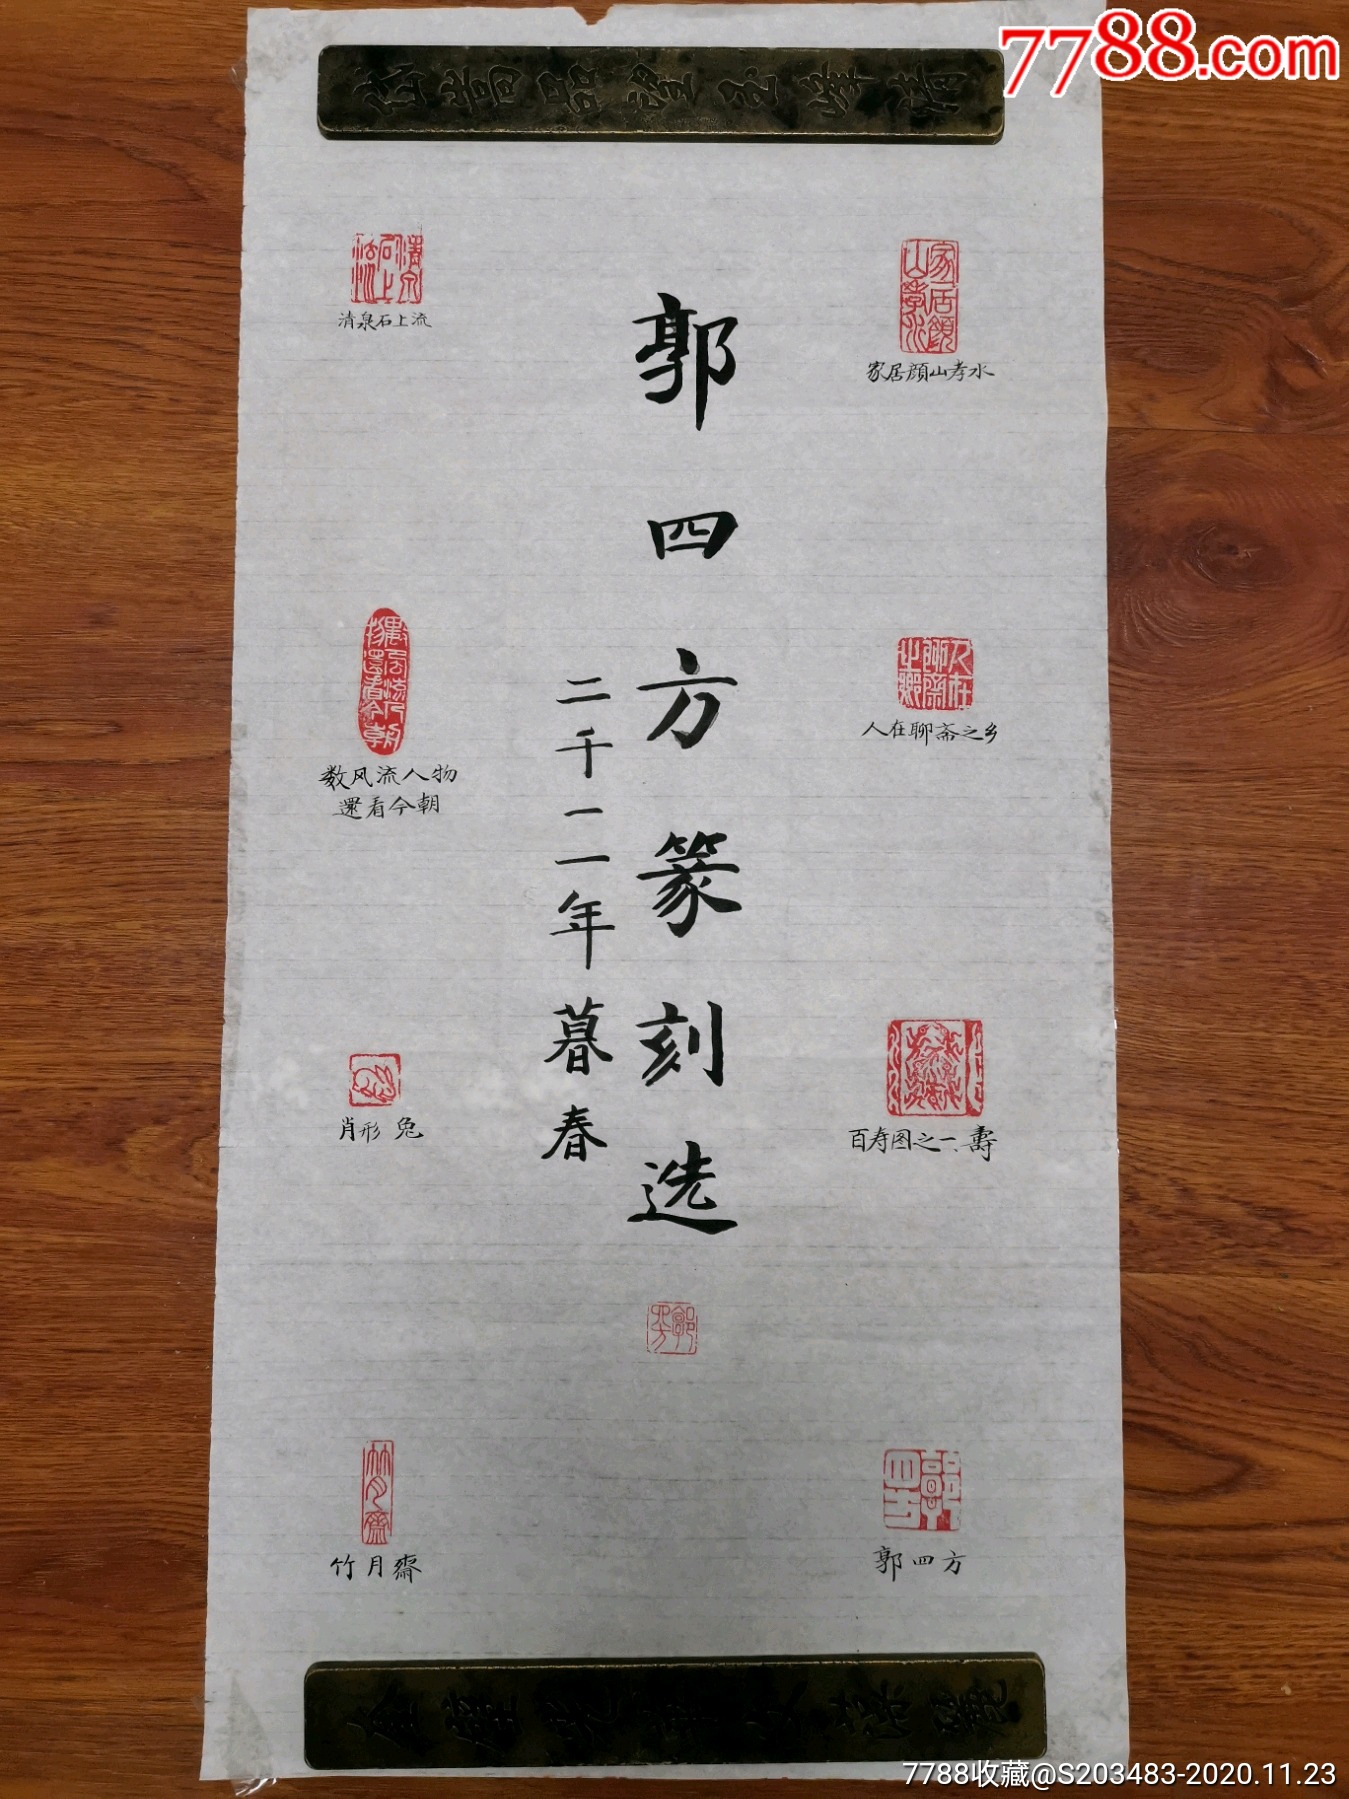 7788.com
家居顔山孝水
人在聊斋之乡
百寿图之一、壽
郭四方
郭四方篆刻选
二千一一年暮春
郭四方
清泉石上流
数风流人物
還看今朝
肖形 兔
竹月齋
7788收藏@S203483-2020.11.23